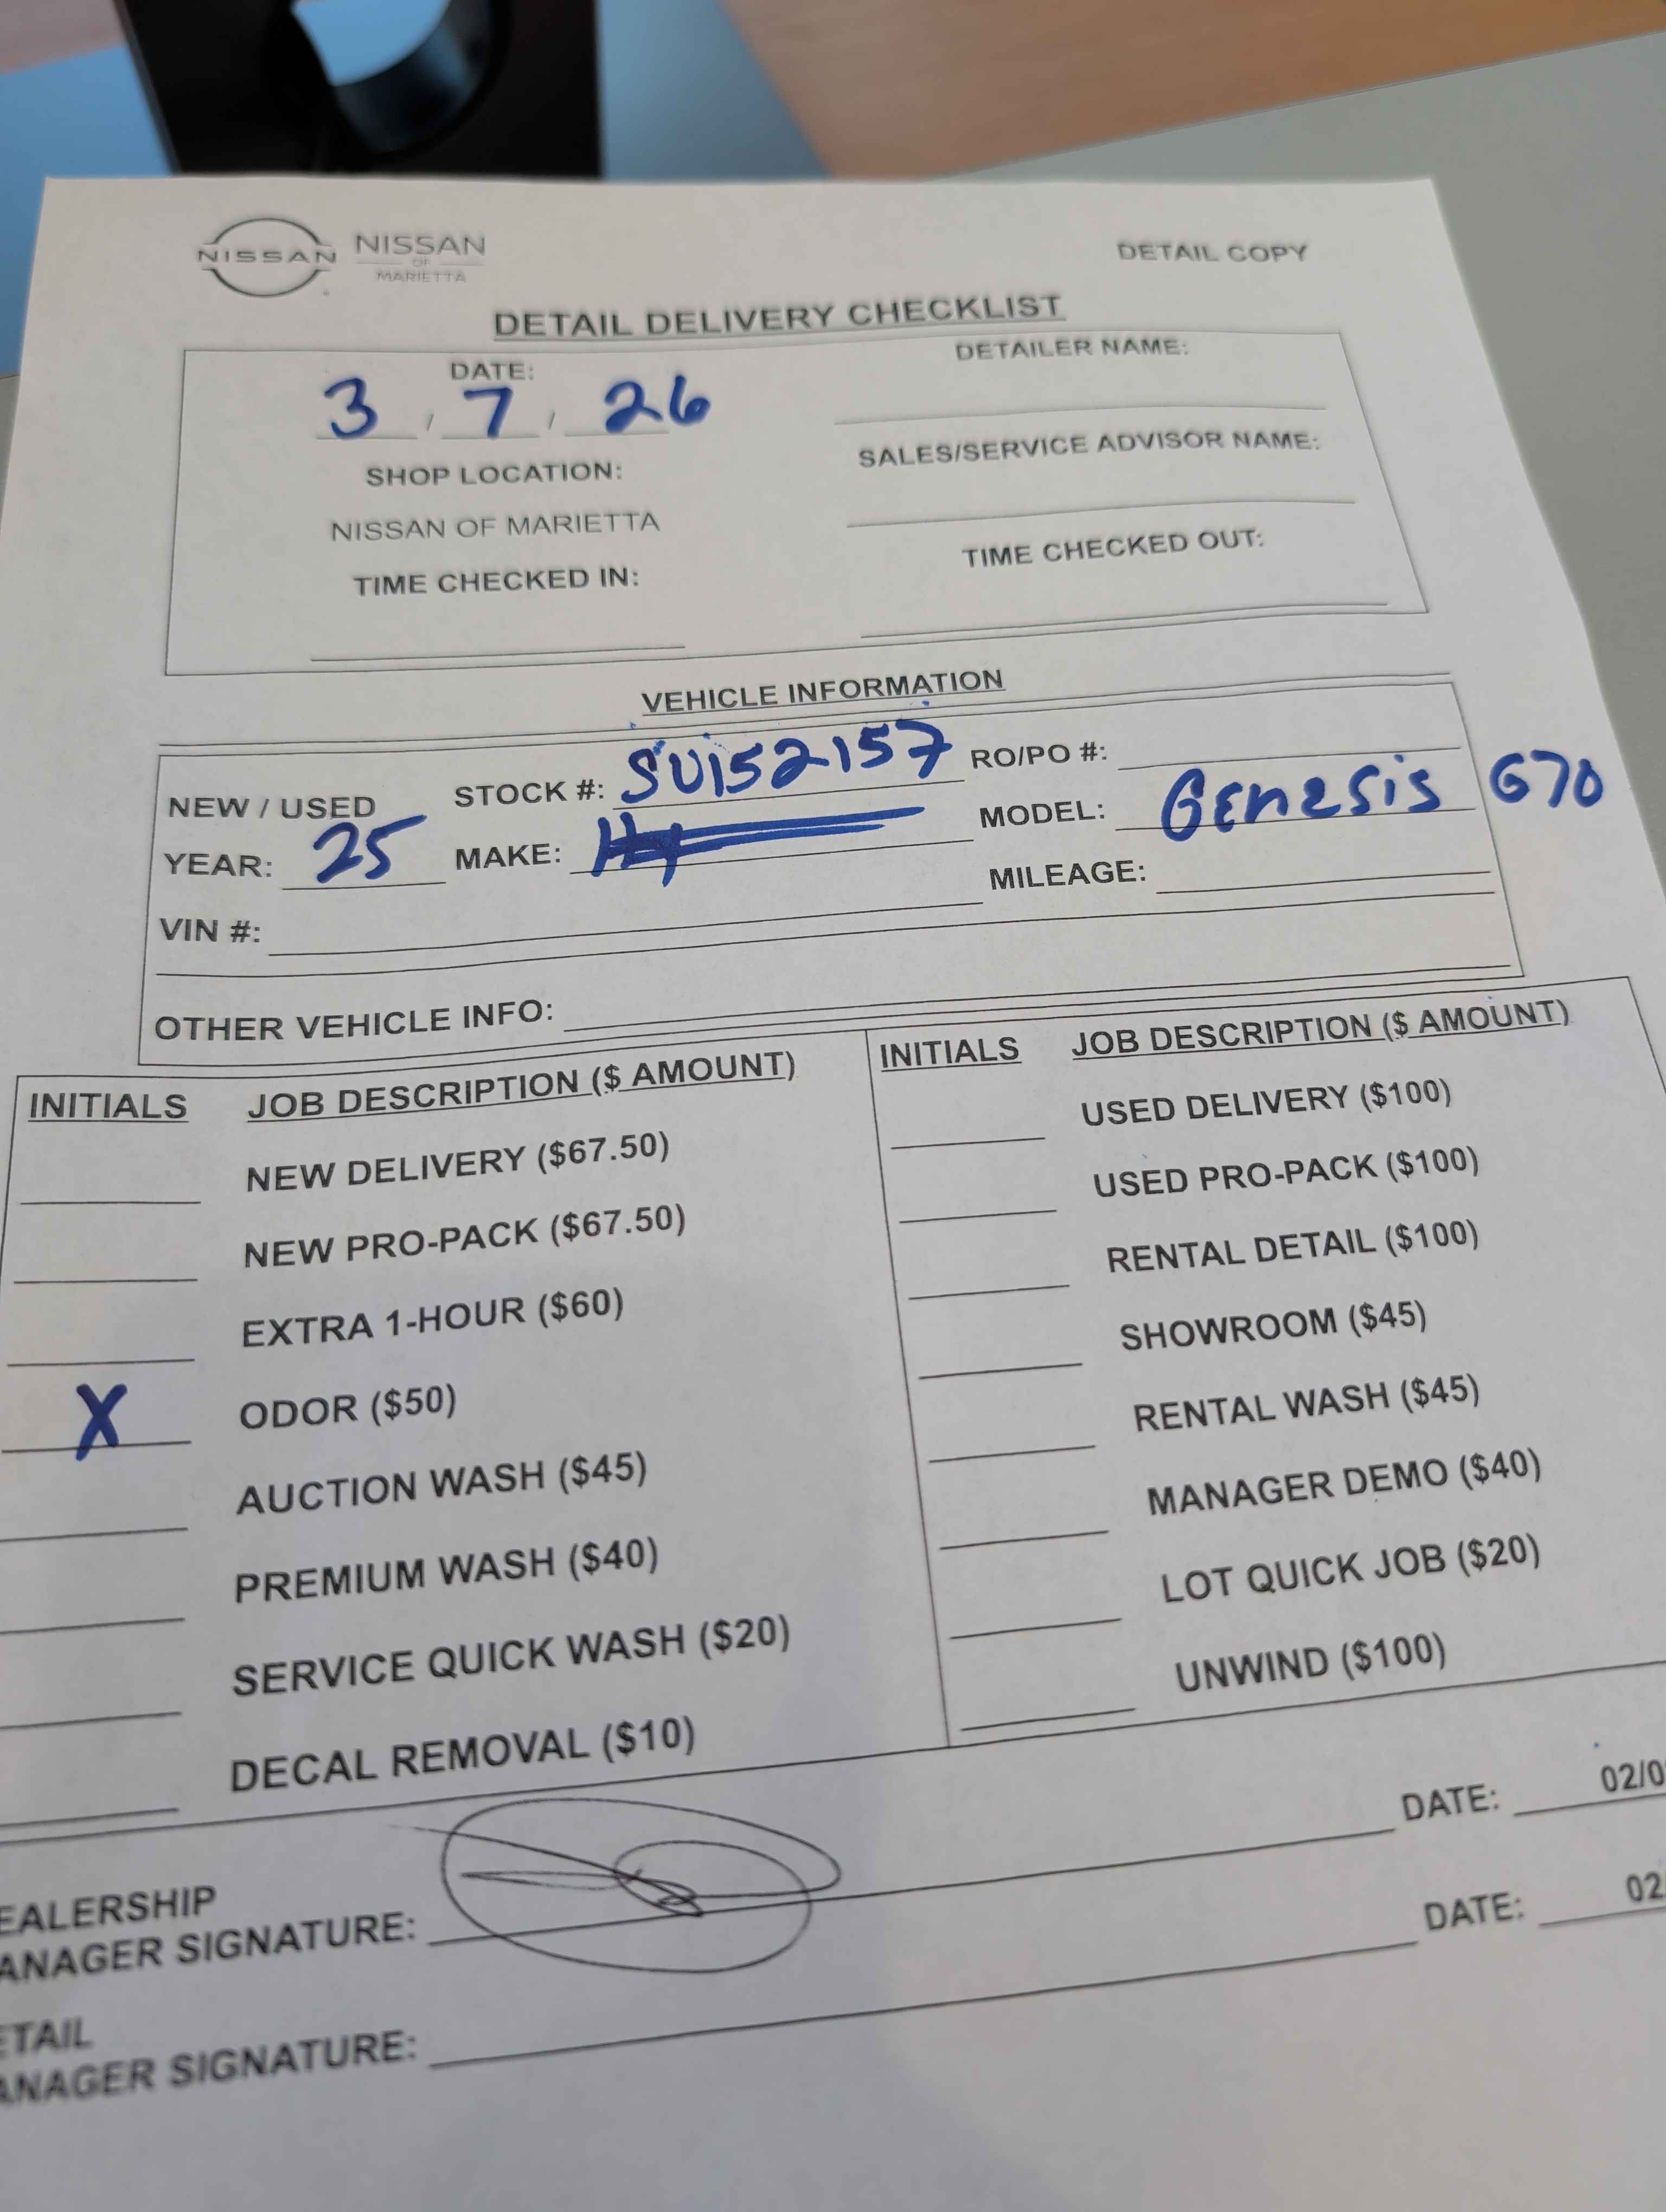 NISSAN NISSAN
OF
MARIETTA
DETAIL COPY
DETAIL DELIVERY CHECKLIST
DATE:
3 / 7 / 26
SHOP LOCATION:
NISSAN OF MARIETTA
TIME CHECKED IN:
DETAILER NAME:
SALES/SERVICE ADVISOR NAME:
TIME CHECKED OUT:
VEHICLE INFORMATION
NEW / USED STOCK #: SU152157 RO/PO #:
YEAR: 25 MAKE: MODEL: GENESIS G70
VIN #: MILEAGE:
OTHER VEHICLE INFO:
INITIALS JOB DESCRIPTION ($ AMOUNT)
NEW DELIVERY ($67.50)
NEW PRO-PACK ($67.50)
EXTRA 1-HOUR ($60)
X ODOR ($50)
AUCTION WASH ($45)
PREMIUM WASH ($40)
SERVICE QUICK WASH ($20)
DECAL REMOVAL ($10)
INITIALS JOB DESCRIPTION ($ AMOUNT)
USED DELIVERY ($100)
USED PRO-PACK ($100)
RENTAL DETAIL ($100)
SHOWROOM ($45)
RENTAL WASH ($45)
MANAGER DEMO ($40)
LOT QUICK JOB ($20)
UNWIND ($100)
EALERSHIP
ANAGER SIGNATURE: DATE: 02/0
ETAIL
ANAGER SIGNATURE: DATE: 02